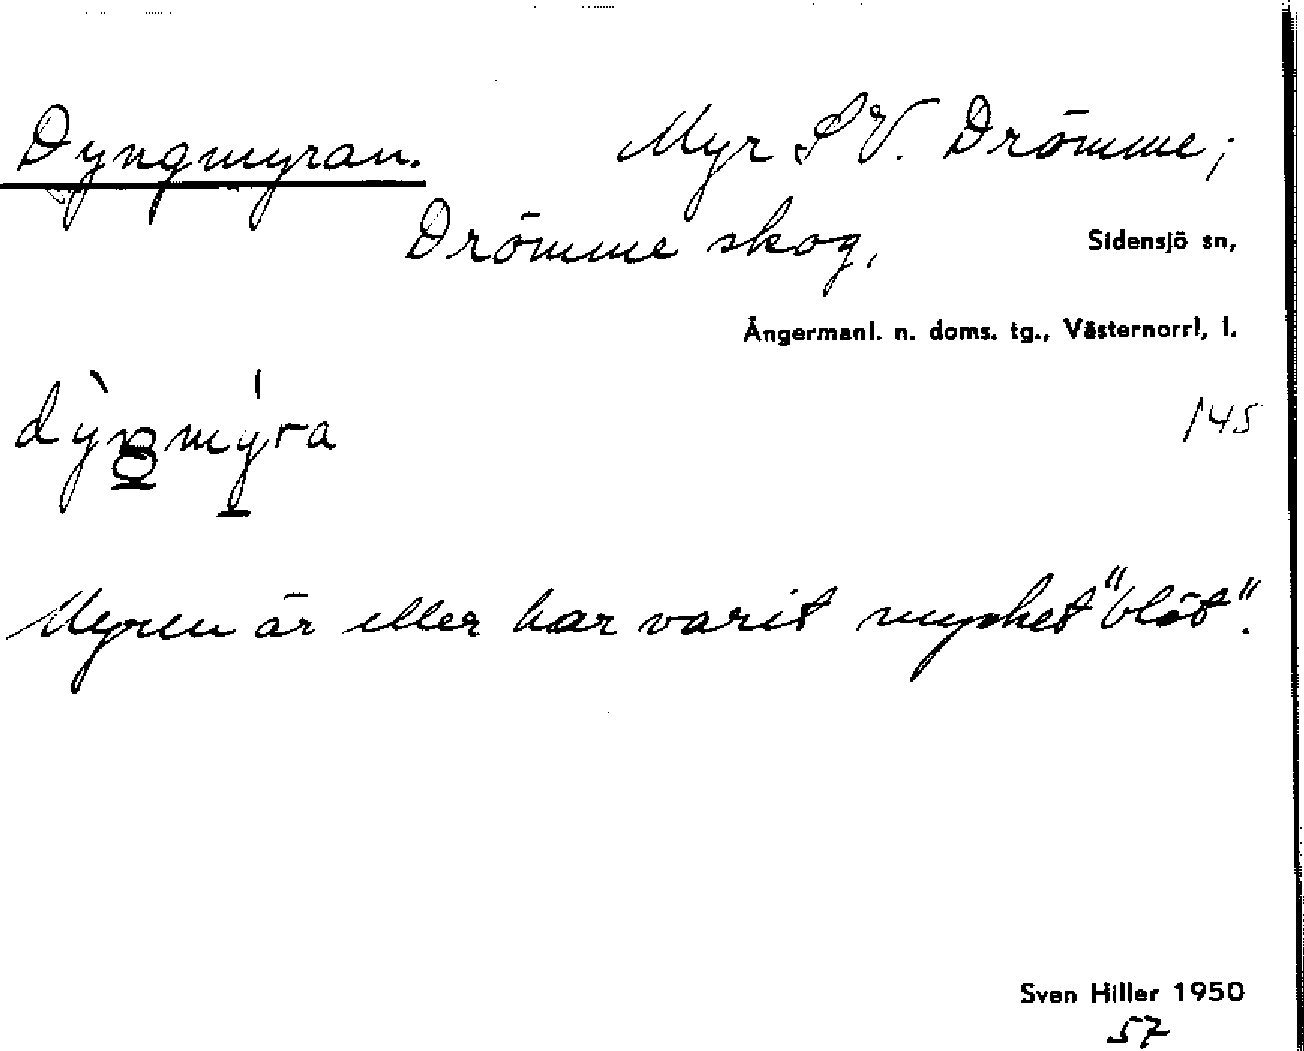 Dyngmyran. Myr S V. Drömme;
Drömme skog, Sidensjö sn,
Ångermanl. n. doms. tg., Västernorrl, l.
145
Myren är eller har varit mycket "blöt".
Sven Hiller 1950
57